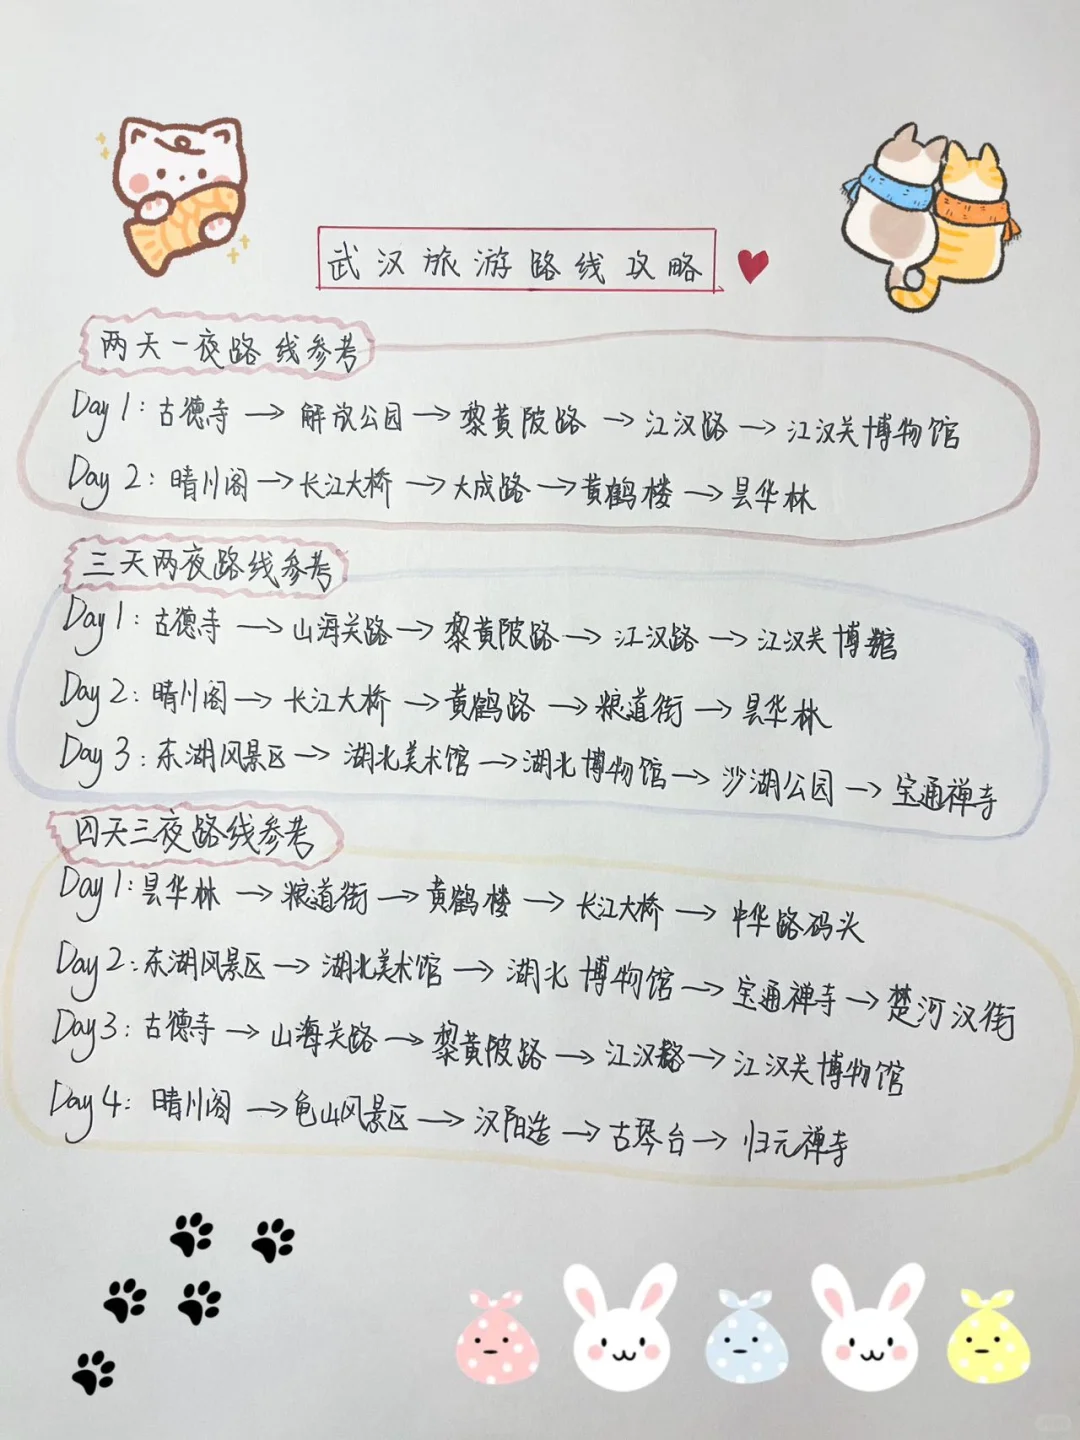 武汉旅游路线攻略
两天一夜路线参考
Day 1: 古德寺→解放公园→黎黄陂路→江汉路→江汉关博物馆
Day 2: 晴川阁→长江大桥→大成路→黄鹤楼→昙华林
三天两夜路线参考
Day 1: 古德寺→山海关路→黎黄陂路→江汉路→江汉关博馆
Day 2: 晴川阁→长江大桥→黄鹤路→粮道街→昙华林
Day 3: 东湖风景区→湖北美术馆→湖北博物馆→沙湖公园→宝通禅寺
四天三夜路线参考
Day 1: 昙华林→粮道街→黄鹤楼→长江大桥→中华路码头
Day 2: 东湖风景区→湖北美术馆→湖北博物馆→宝通禅寺→楚河汉街
Day 3: 古德寺→山海关路→黎黄陂路→江汉路→江汉关博物馆
Day 4: 晴川阁→龟山风景区→汉阳造→古琴台→归元禅寺